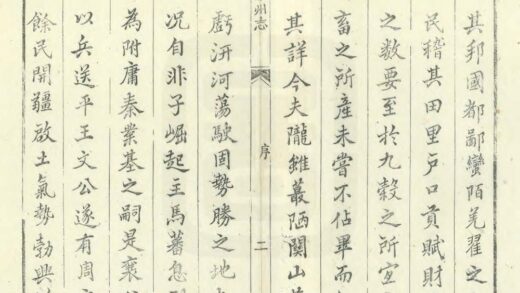 其邦國都鄙蠻陌羌翟之
民稽其田里戶口貢賦財
之数要至於九穀之所宜
畜之所產未嘗不佔畢而
其詳今夫隴雖蕞陋関山
虧汧河蕩駛固勢勝之地
州志
序
二
况自非子崛起主馬蕃息
為附庸秦業基之嗣是襄
以兵送平王文公遂有周
餘民開疆啟土氣勢勃興